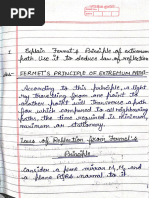 1 Explain Fermet's Principle of extremum
path. Use it to deduce law of reflection
Ans- FERMET'S PRINCIPLE OF EXTREMUM PATH-
According to this principle, a light
ray travelling from one point to
another point will traverse a path
for which compared to all neighbouring
paths, the time required is minimum,
maximum or stationary.
Laws of Reflection from Fermat's
Principle
Consider a plane mirror M₁ M₂ and
a plane normal to it